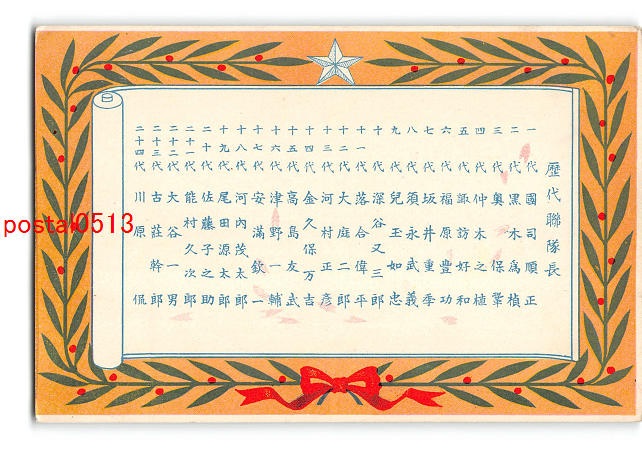 歴代聯隊長
一代 國司順正
二代 黒木為楨
三代 奥保鞏
四代 仲木之植
五代 諏訪好和
六代 福原豊功
七代 坂井重季
八代 須永武義
九代 兒玉如忠
十代 深谷又三郎
十一代 落合偉平
十二代 大庭二郎
十三代 河村正彦
十四代 金久保万吉
十五代 高島友武
十六代 津野一輔
十七代 安満欽一
十八代 河内茂太郎
十九代 尾田源太郎
二十代 佐藤子之助
二十一代 能村久次郎
二十二代 大谷一男
二十三代 古荘幹郎
二十四代 川原侃
postal0513